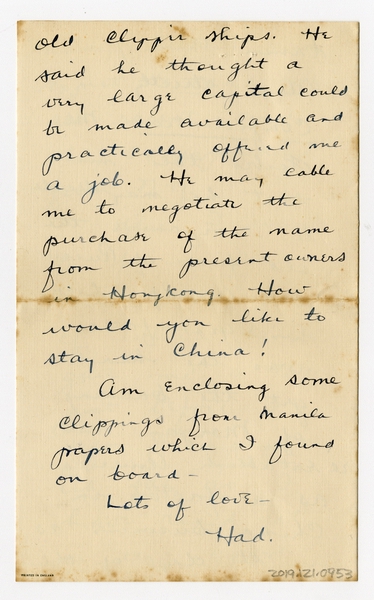 old clipper ships. He
said he thought a
very large capital could
be made available and
practically offered me
a job. He may cable
me to negotiate the
purchase of the name
from the present owners
in Hongkong. How
would you like to
stay in China!
Am enclosing some
clippings from Manila
papers which I found
on board–
Lots of love–
Had.
PRINTED IN ENGLAND
2019.21.0953